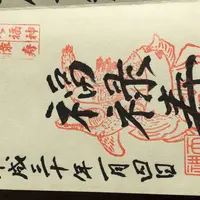 福禄寿
平成三十年一月四日